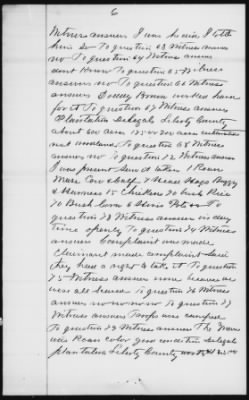 6
Witness answers I was he sir I told
him so To question 63 Witness answers
no To question 64 Witness answers
dont Know To question 65 Witness
answers no To question 66 Witness
answers worked hard
for it To question 67 Witness answers
Plantation Liberty County
about 600 acres 125 or 200 acres cultivation
rest woodland To question 68 Witness
answers no To question 72 Witness answers
I was present when taken 1 Roan
Mare Cow & calf 7 Head Hogs Buggy
& Harness 15 Chickens 20 bush Rice
10 Bush Corn 6 Pots To
question 73 Witness answers in day
time openly To question 74 Witness
answers Complaint was made
Claimant made complaint said
they have a right to take it To question
75 Witness answers none because we
were all scared To question 76 Witness
answers no no no no To question 77
Witness answers Troops was camped
To question 78 Witness answers The Mare
was Roan color good condition
plantation Liberty County worth